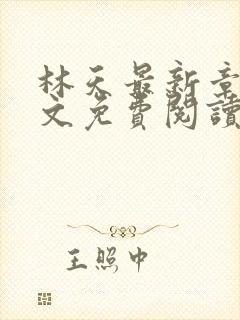 林天最新章
文免費閱讀
王照中